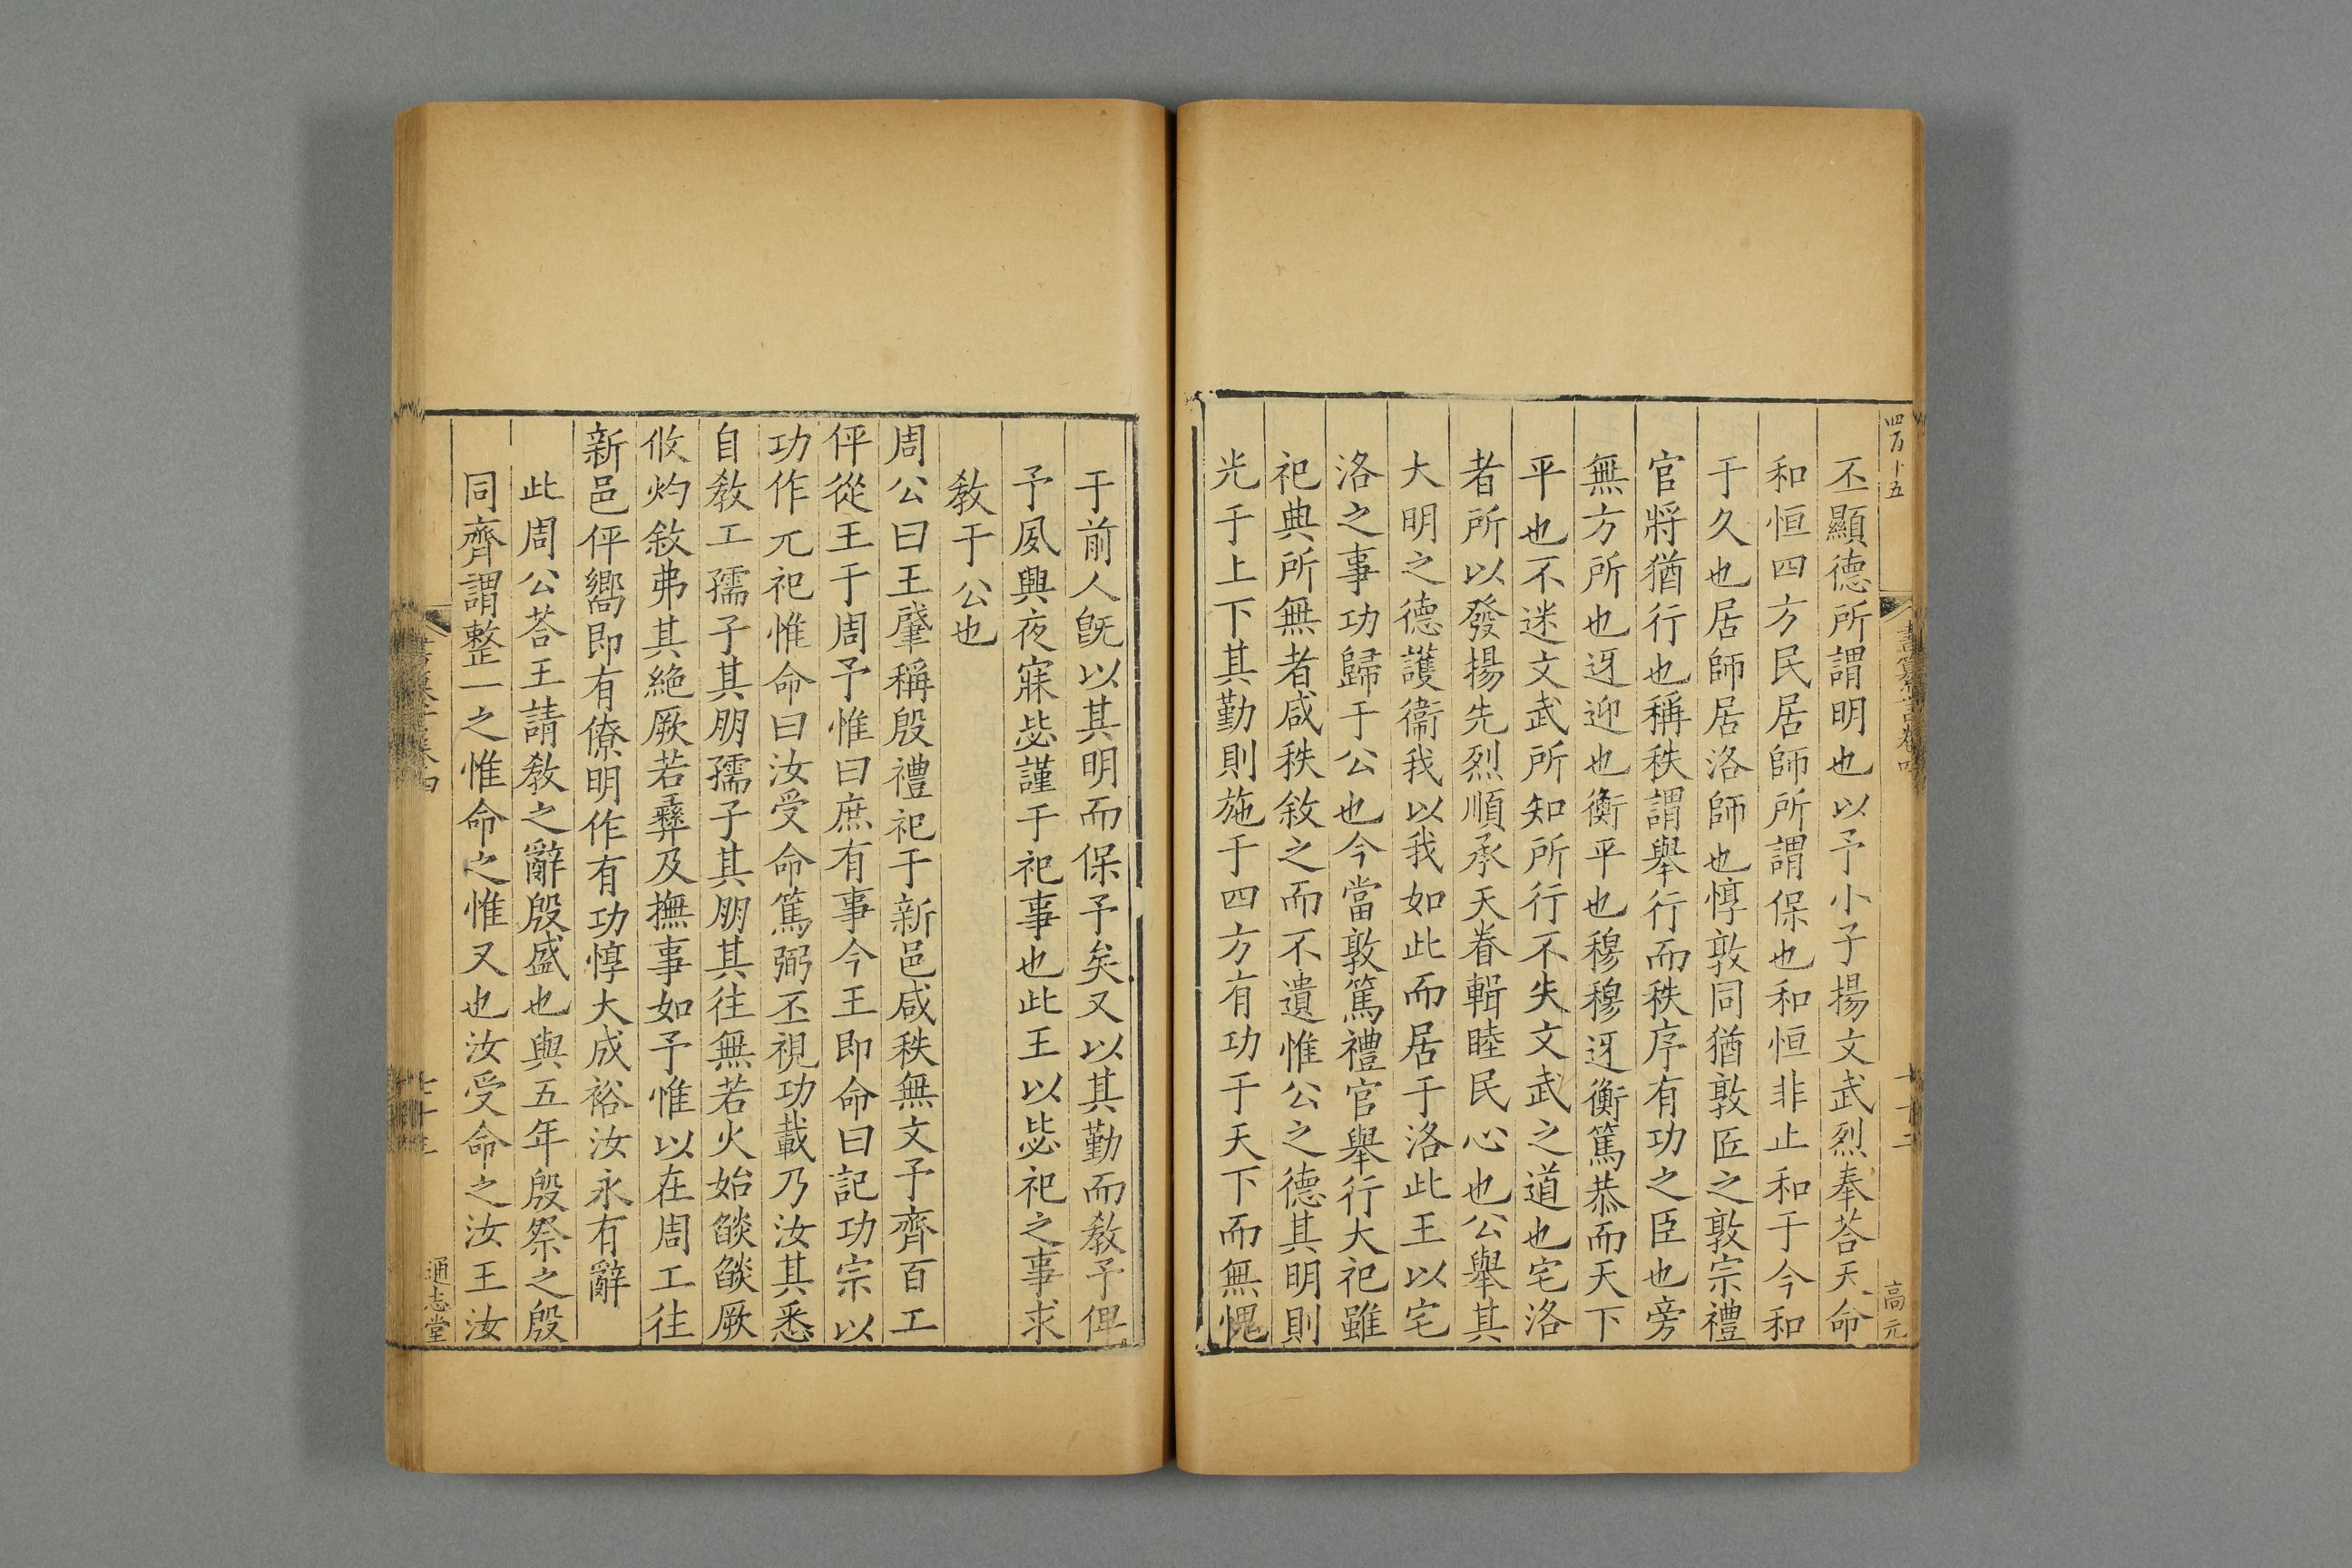 四百十五
高元
丕顯德所謂明也以予小子揚文武烈奉荅天命
和恒四方民居師所謂保也和恒非止和于今和
于久也居師居洛師也惇敦同猶敦匠之敦宗禮
官將猶行也稱秩謂舉行而秩序有功之臣也旁
無方所也迓迎也衡平也穆穆迓衡篤恭而天下
平也不迷文武所知所行不失文武之道也宅洛
者所以發揚先烈順承天眷輯睦民心也公舉其
大明之德護衞我以我如此而居于洛此王以宅
洛之事功歸于公也今當敦篤禮官舉行大祀雖
祀典所無者咸秩敘之而不遺惟公之德其明則
光于上下其勤則施于四方有功于天下而無愧
于前人旣以其明而保予矣又以其勤而敎予俾
予夙興夜寐毖謹于祀事也此王以毖祀之事求
敎于公也
周公曰王肇稱殷禮祀于新邑咸秩無文予齊百工
伻從王于周予惟曰庶有事今王即命曰記功宗以
功作元祀惟命曰汝受命篤弼丕視功載乃汝其悉
自敎工孺子其朋孺子其朋其往無若火始燄燄厥
攸灼敘弗其絶厥若彝及撫事如予惟以在周工往
新邑伻嚮即有僚明作有功惇大成裕汝永有辭
此周公荅王請敎之辭殷盛也與五年殷祭之殷
同齊謂整一之惟命之惟又也汝受命之汝王汝
通志堂